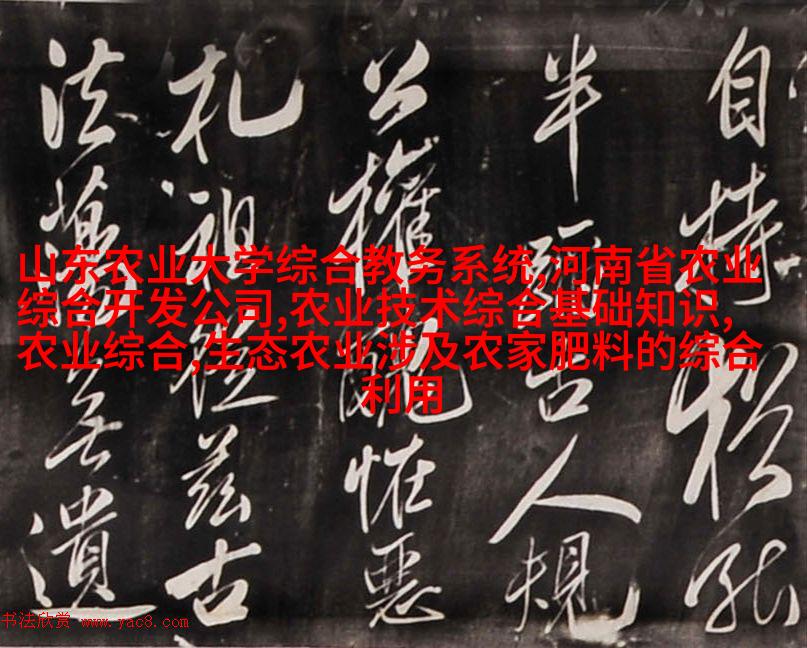 自持猶能
半蹈古人規
公權醜怪惡
札祖從茲古
法蕩無遺
山东农业大学综合教务系统,河南省农业
综合开发公司,农业技术综合基础知识,
农业综合,生态农业涉及农家肥料的综合
利用
书法欣赏 www.yac8.com